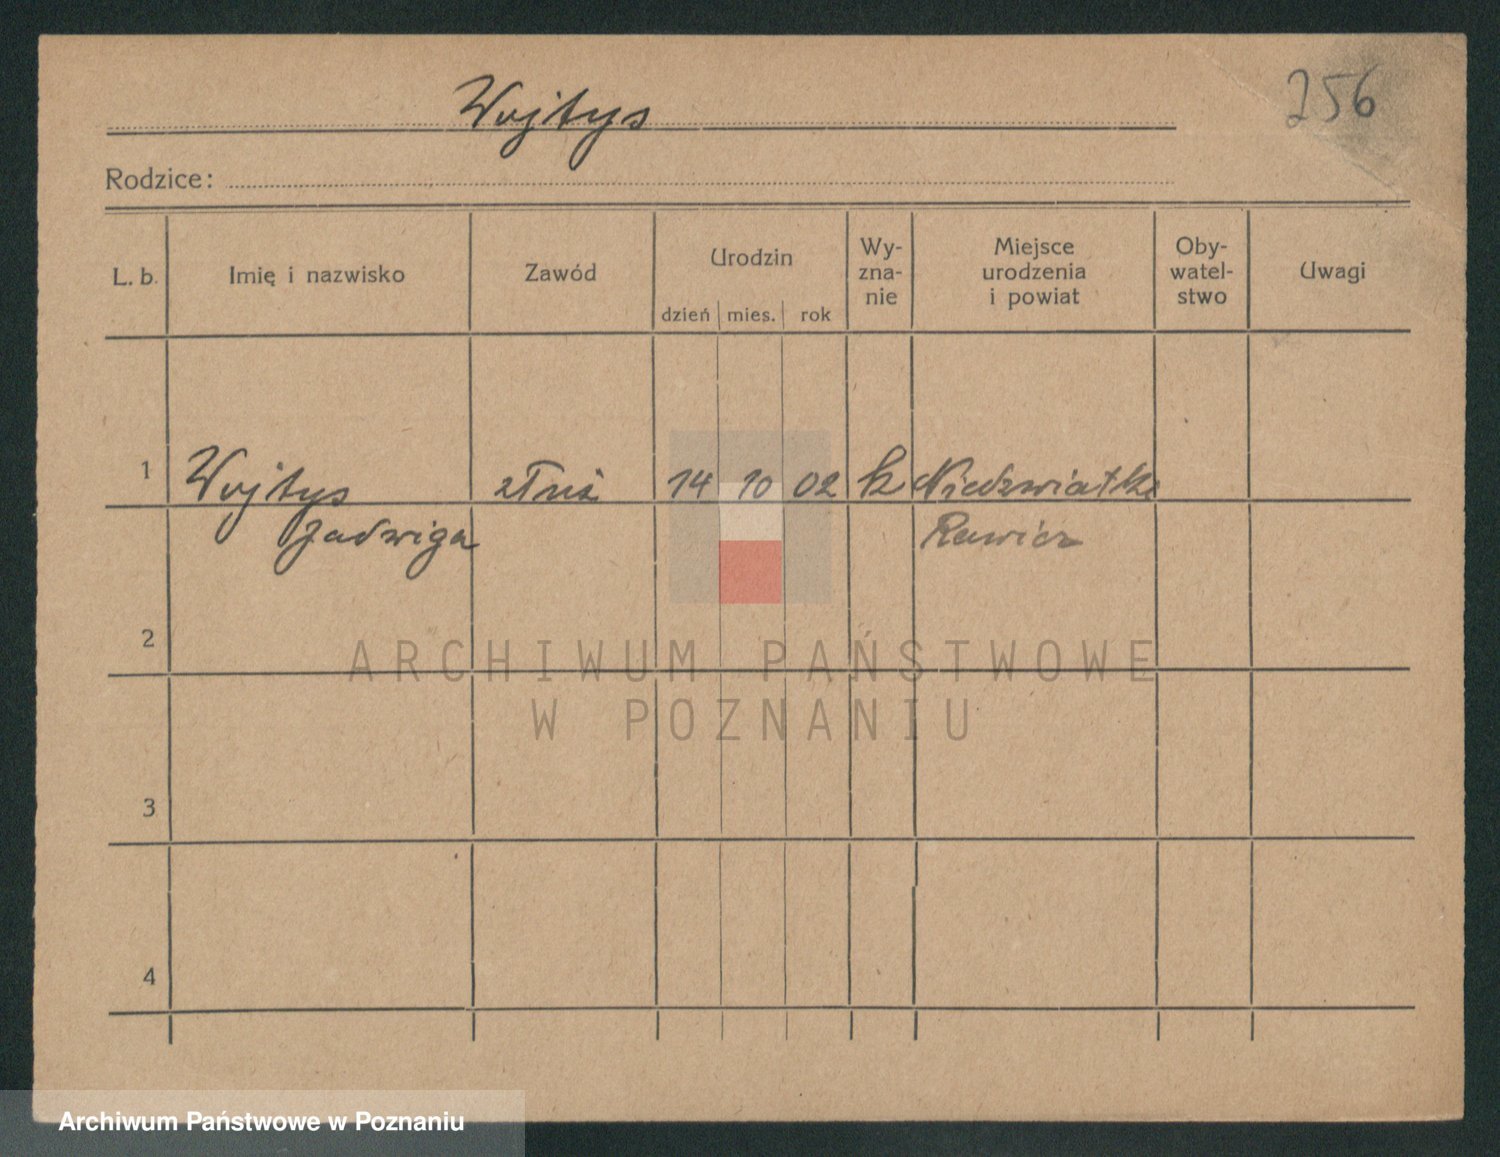 256
Wojtys
Rodzice:
L. b. Imię i nazwisko Zawód Urodzin dzień mies. rok Wy-zna-nie Miejsce urodzenia i powiat Oby-watel-stwo Uwagi
1 Wojtys 14 10 02 k Niedzwiadki
Jadwiga Rawicz
2
ARCHIWUM PAŃSTWOWE
W POZNANIU
3
4
Archiwum Państwowe w Poznaniu